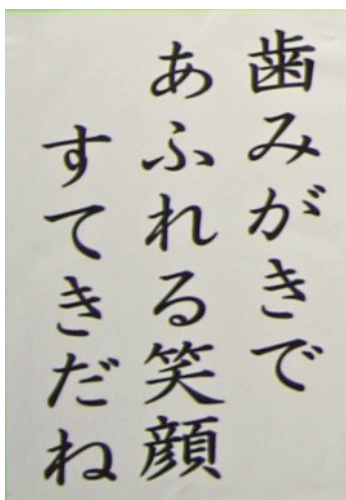 歯みがきで
あふれる笑顔
すてきだね